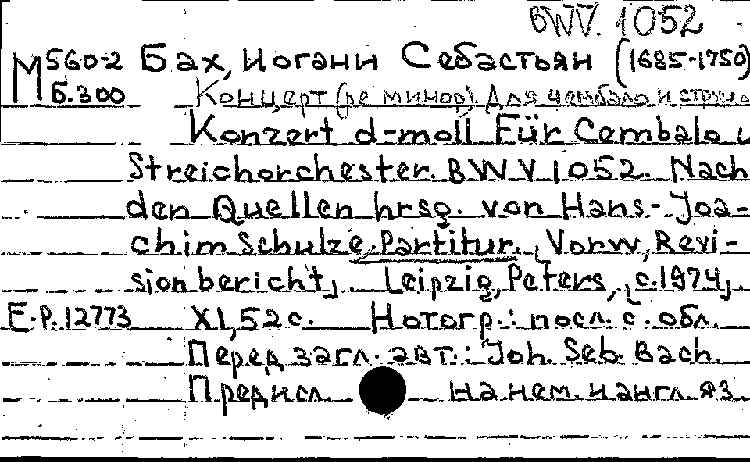 BWV. 1052
М 560-2 Бах, Иоганн Себастьян (1685-1750)
Б.300 Концерт (ре минор) для чембало и струн.
Konzert d-moll Für Cembalo u
Streichorchester. BWV 1052. Nach
den Quellen hrsg. von Hans-Joa-
chim Schulze. Partitur. [Vorw, Revi-
sionbericht]. Leipzig, Peters, [c.1974]
E.P.12773 XI, 52 с. Нотогр.: посл. с. обл.
Перед загл. авт.: Joh. Seb. Bach.
Предисл. на нем. и англ. яз.